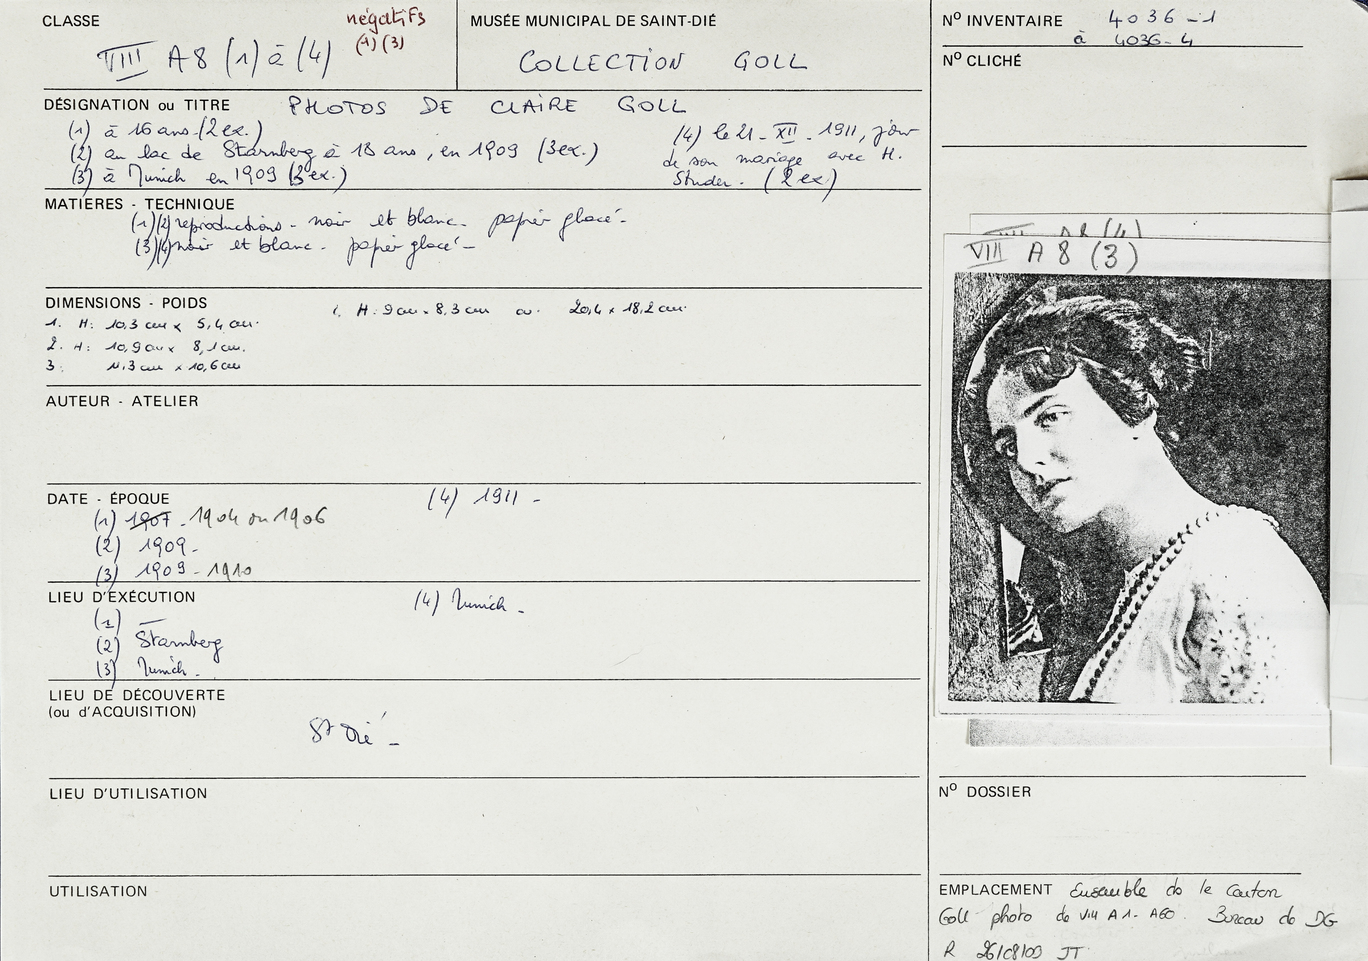 CLASSE
négatifs
(1) (3)
VIII A8 (1) à (4)
MUSÉE MUNICIPAL DE SAINT-DIÉ
COLLECTION GOLL
Nº INVENTAIRE 4036-1
à 4036-4
Nº CLICHÉ
DÉSIGNATION ou TITRE PHOTOS DE CLAIRE GOLL
(1) à 16 ans (2 ex.)
(2) au lac de Starnberg à 18 ans, en 1909 (3 ex.)
(3) à Munich en 1909 (3 ex.)
(4) le 21-XII-1911, jour
de son mariage avec H.
Studer. (2 ex)
MATIÈRES - TECHNIQUE
(1)(2) reproductions - noir et blanc - papier glacé -
(3)(4) noir et blanc - papier glacé -
DIMENSIONS - POIDS
1. H: 10,3 cm x 5,4 cm.
2. H: 10,9 cm x 8,1 cm.
3: 11,3 cm x 10,6 cm
H: 9 cm x 8,3 cm ou 20,4 x 18,2 cm.
AUTEUR - ATELIER
DATE - ÉPOQUE
(1) 1907 - 1904 ou 1906
(2) 1909 -
(3) 1909 - 1910
(4) 1911 -
LIEU D'EXÉCUTION
(1) —
(2) Starnberg
(3) Munich -
(4) Munich -
LIEU DE DÉCOUVERTE
(ou d'ACQUISITION)
St Dié -
LIEU D'UTILISATION
UTILISATION
VIII A8 (4)
VIII A8 (3)
Nº DOSSIER
EMPLACEMENT Ensemble de le Carton
Goll photo de VIII A1- A60. Bureau de DG
R 26/08/03 JT